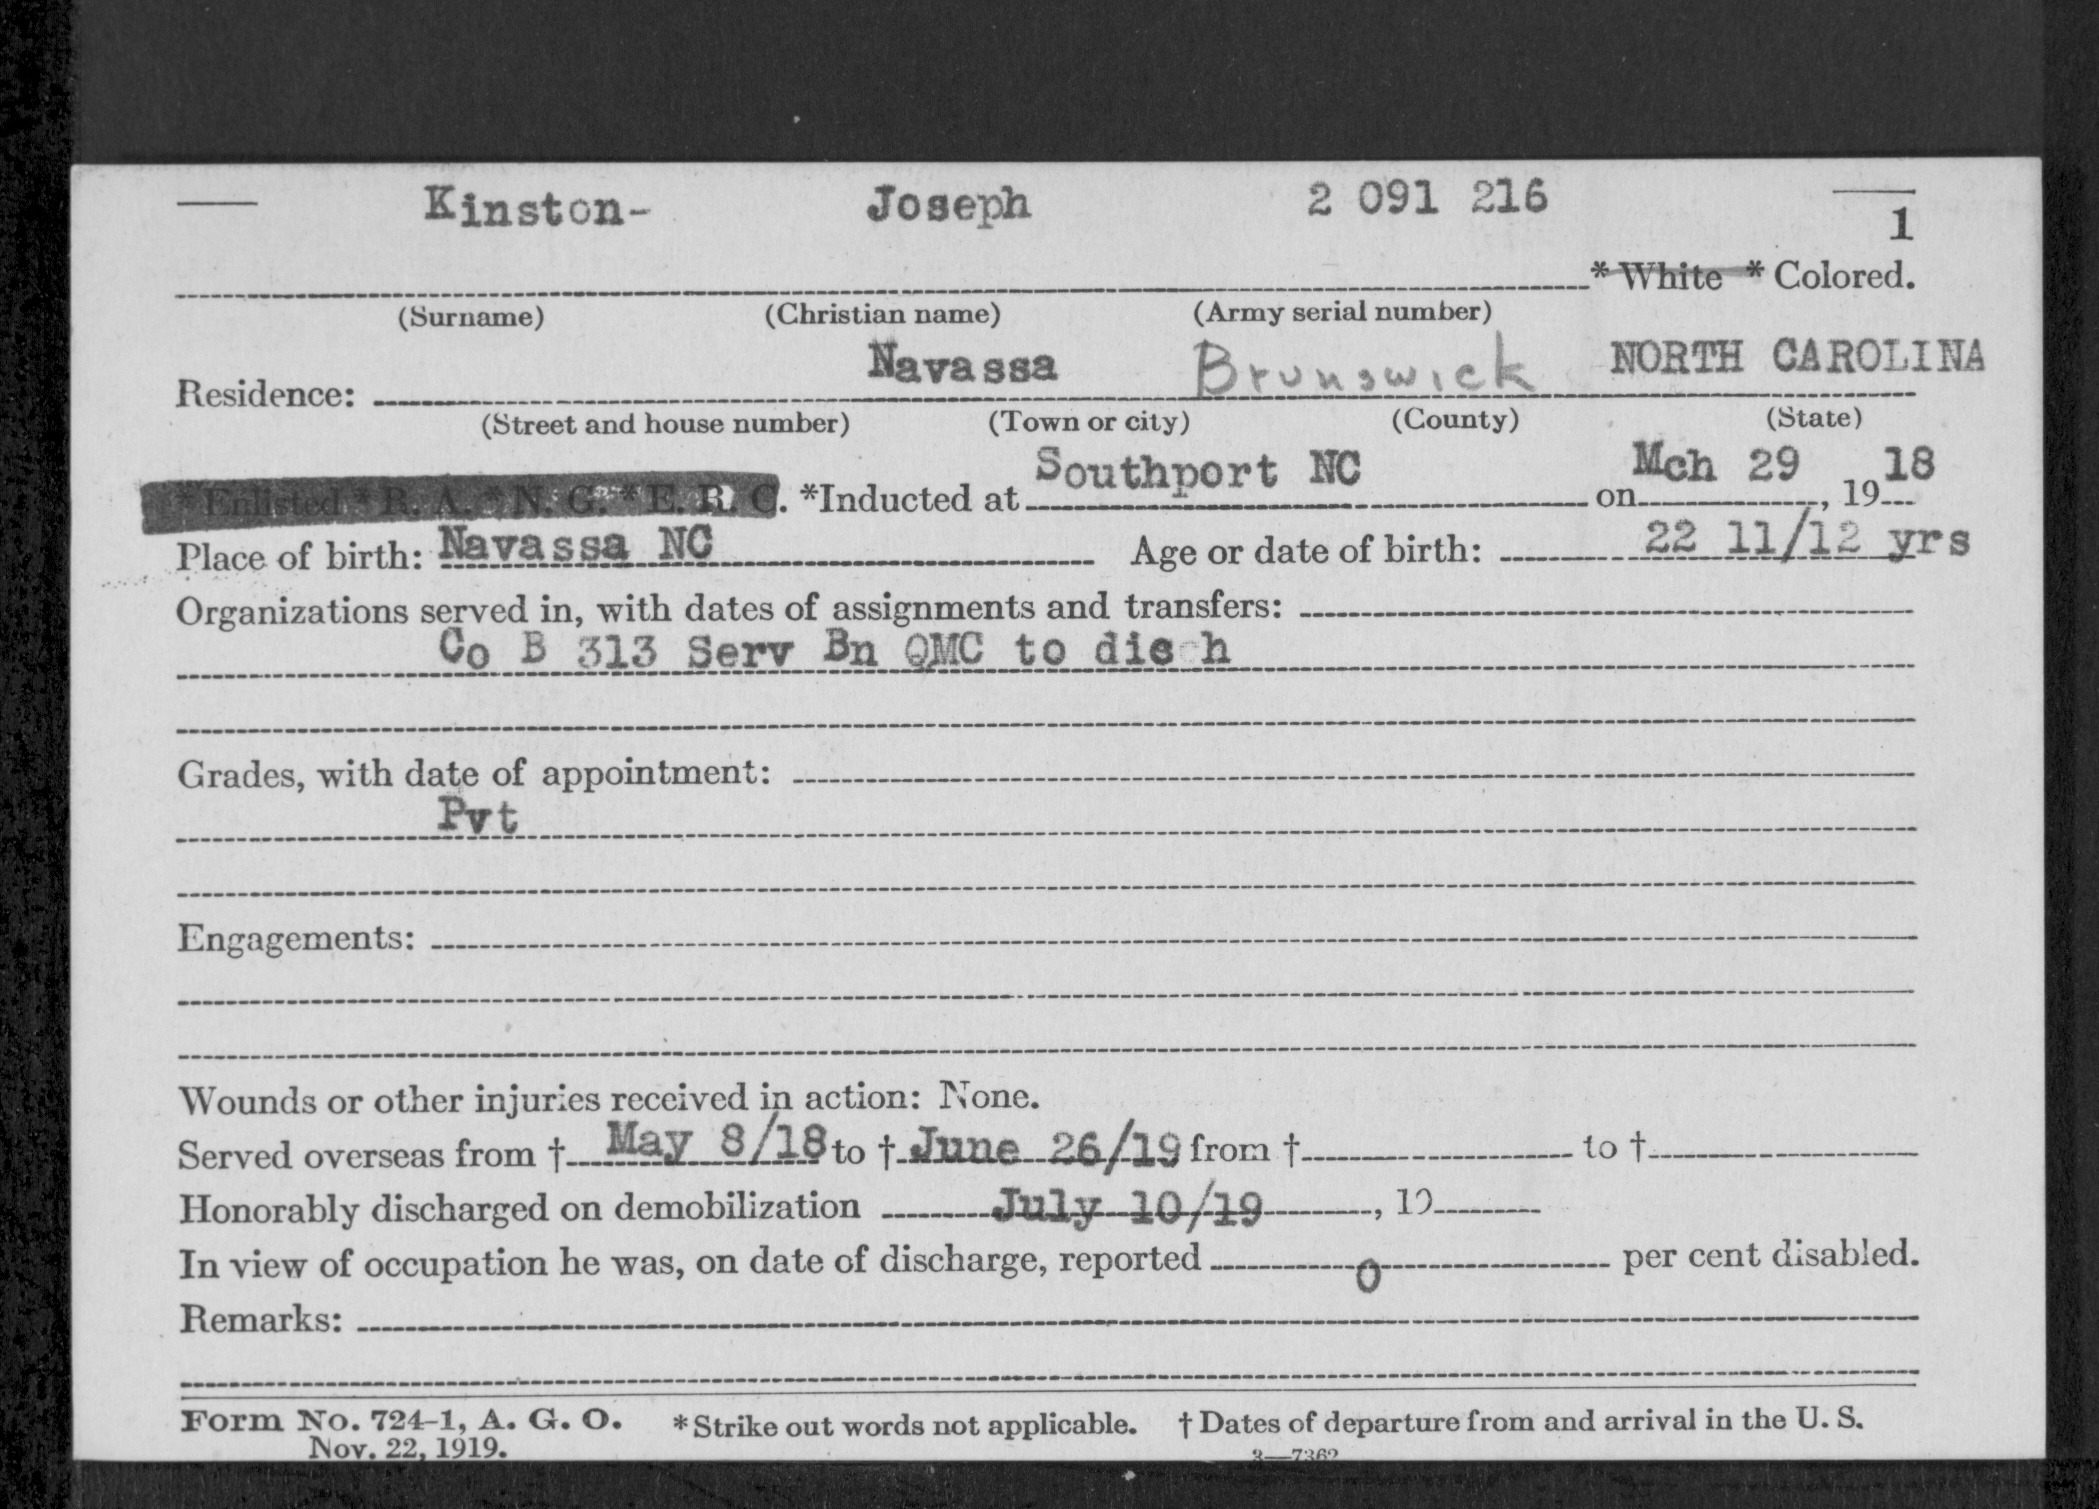 Kinston- Joseph 2 091 216 1
* White * Colored.
(Surname) (Christian name) (Army serial number)
Residence: Navassa Brunswick NORTH CAROLINA
(Street and house number) (Town or city) (County) (State)
*Enlisted *R. A. *N. G. *E. R. C. *Inducted at Southport NC on Mch 29, 1918
Place of birth: Navassa NC Age or date of birth: 22 11/12 yrs
Organizations served in, with dates of assignments and transfers:
Co B 313 Serv Bn QMC to disch
Grades, with date of appointment:
Pvt
Engagements:
Wounds or other injuries received in action: None.
Served overseas from † May 8/18 to † June 26/19 from † to †
Honorably discharged on demobilization July 10/19, 19
In view of occupation he was, on date of discharge, reported 0 per cent disabled.
Remarks:
Form No. 724-1, A. G. O. *Strike out words not applicable. † Dates of departure from and arrival in the U. S.
Nov. 22, 1919. 3—7362